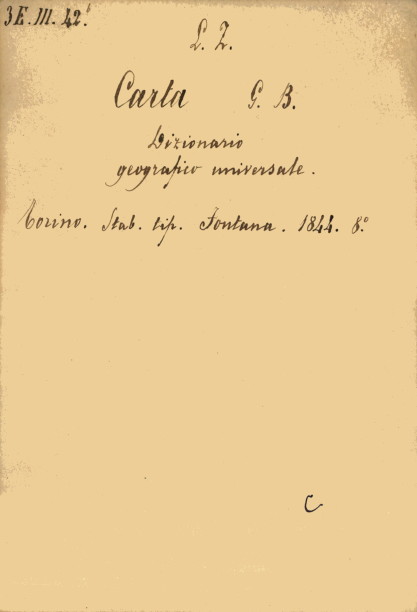 3E.III.42.
L. Z.
Carta G. B.
Dizionario
geografico universale.
Torino. Stab. tip. Fontana. 1844. 8.°
C